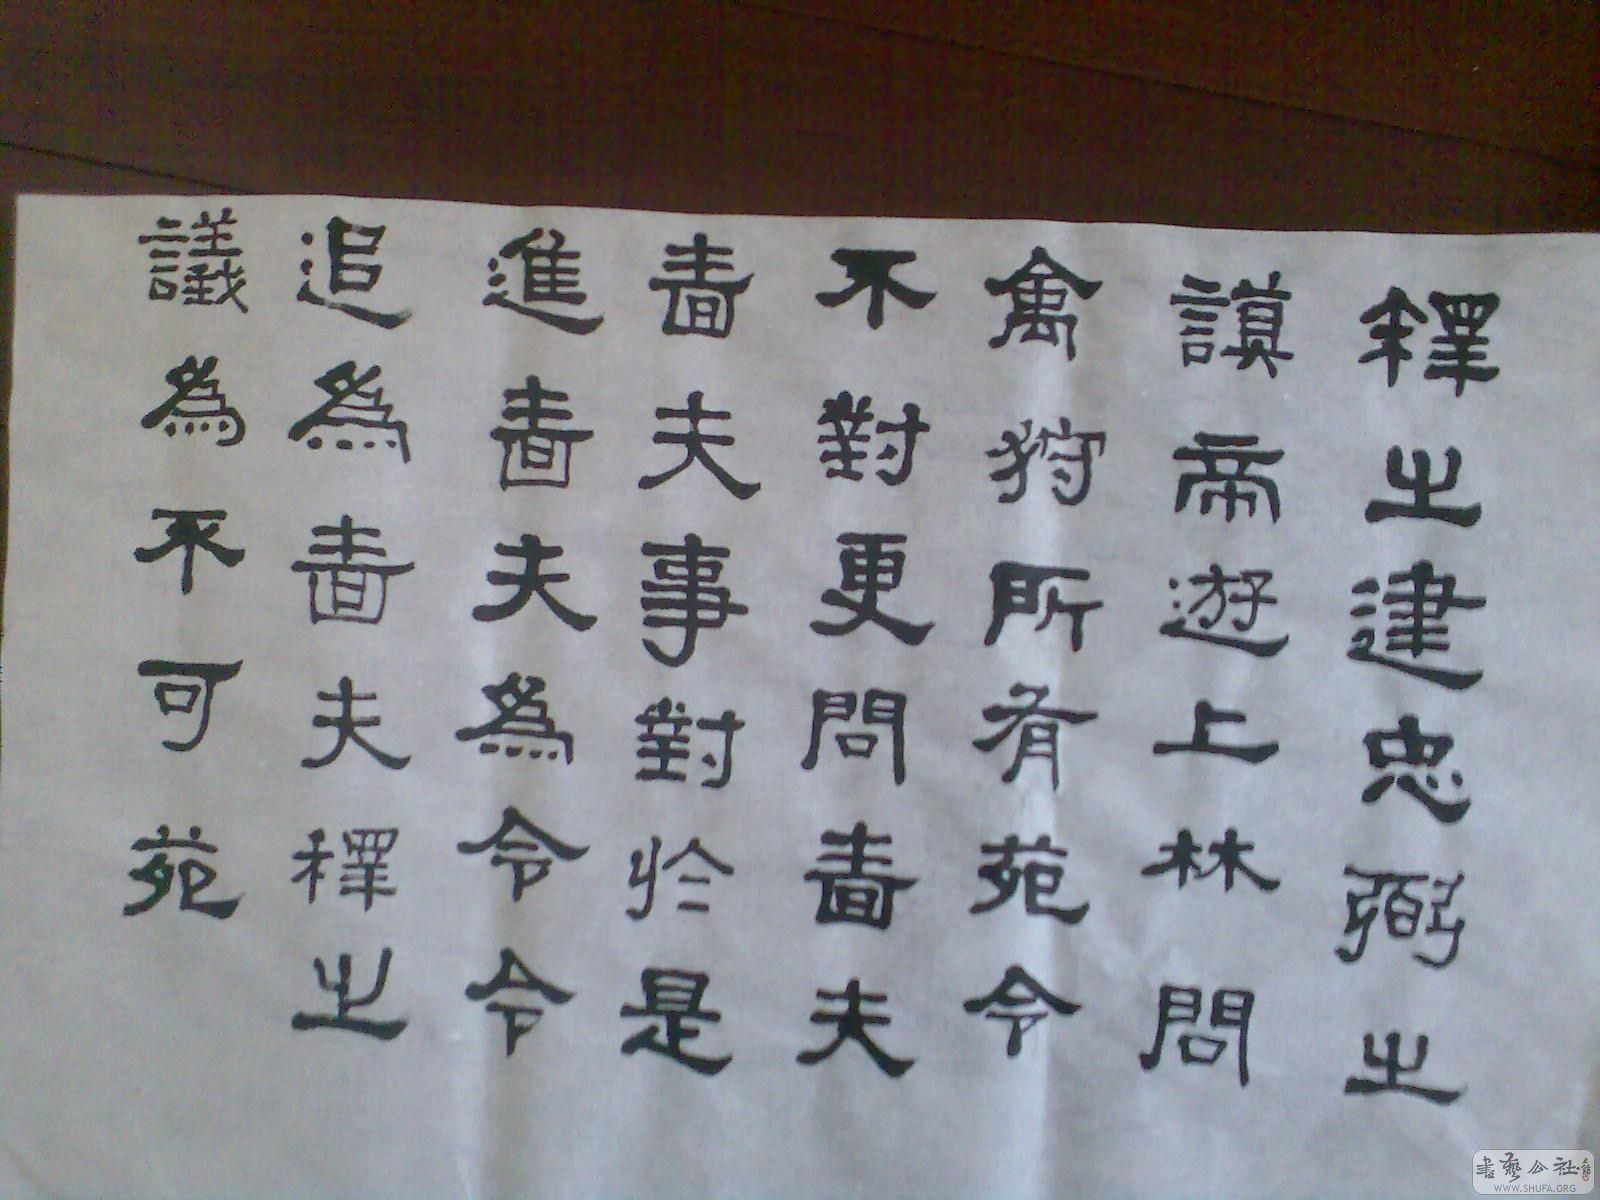 釋之建忠弼之
謨帝遊上林問
禽狩所有苑令
不對更問嗇夫
嗇夫事對於是
進嗇夫為令令
退為嗇夫釋之
議為不可苑
書藝公社
WWW.SHUFA.ORG